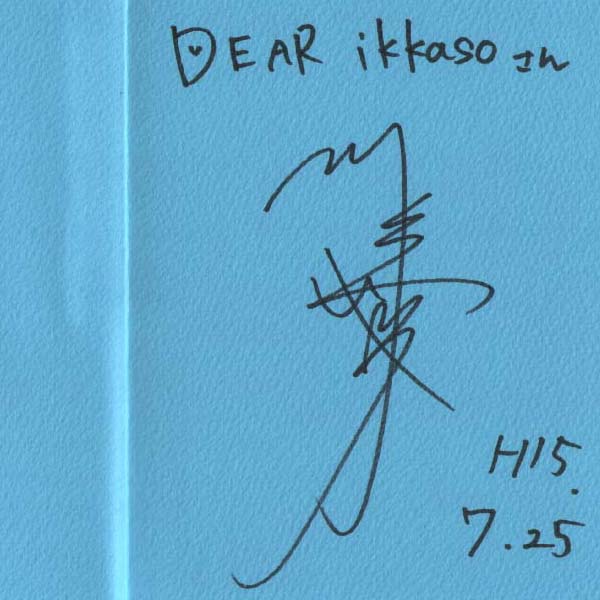 DEAR ikkasoさん
H15.
7.25